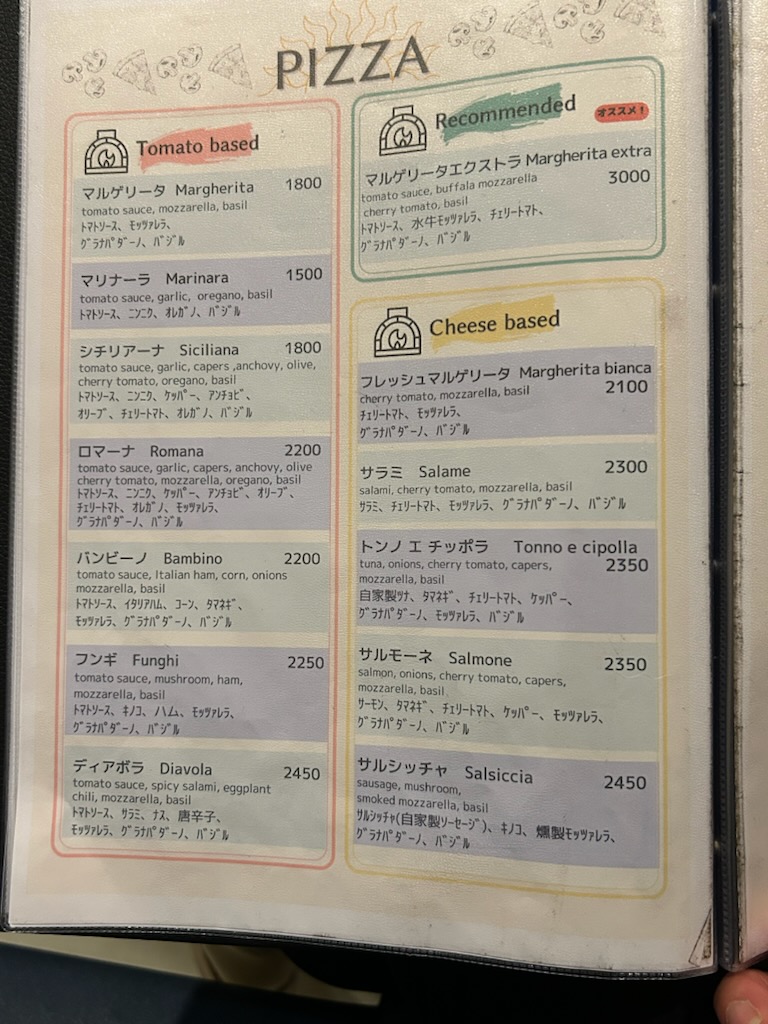 PIZZA
Tomato based
マルゲリータ Margherita 1800
tomato sauce, mozzarella, basil
ﾄﾏﾄｿｰｽ、ﾓｯﾂｧﾚﾗ、
ｸﾞﾗﾅﾊﾟﾀﾞｰﾉ、ﾊﾞｼﾞﾙ
マリナーラ Marinara 1500
tomato sauce, garlic, oregano, basil
ﾄﾏﾄｿｰｽ、ﾆﾝﾆｸ、ｵﾚｶﾞﾉ、ﾊﾞｼﾞﾙ
シチリアーナ Siciliana 1800
tomato sauce, garlic, capers ,anchovy, olive,
cherry tomato, oregano, basil
ﾄﾏﾄｿｰｽ、ﾆﾝﾆｸ、ｹｯﾊﾟｰ、ｱﾝﾁｮﾋﾞ、
ｵﾘｰﾌﾞ、ﾁｪﾘｰﾄﾏﾄ、ｵﾚｶﾞﾉ、ﾊﾞｼﾞﾙ
ロマーナ Romana 2200
tomato sauce, garlic, capers, anchovy, olive
cherry tomato, mozzarella, oregano, basil
ﾄﾏﾄｿｰｽ、ﾆﾝﾆｸ、ｹｯﾊﾟｰ、ｱﾝﾁｮﾋﾞ、ｵﾘｰﾌﾞ、
ﾁｪﾘｰﾄﾏﾄ、ｵﾚｶﾞﾉ、ﾓｯﾂｧﾚﾗ、
ｸﾞﾗﾅﾊﾟﾀﾞｰﾉ、ﾊﾞｼﾞﾙ
バンビーノ Bambino 2200
tomato sauce, Italian ham, corn, onions
mozzarella, basil
ﾄﾏﾄｿｰｽ、ｲﾀﾘｱﾊﾑ、ｺｰﾝ、ﾀﾏﾈｷﾞ、
ﾓｯﾂｧﾚﾗ、ｸﾞﾗﾅﾊﾟﾀﾞｰﾉ、ﾊﾞｼﾞﾙ
フンギ Funghi 2250
tomato sauce, mushroom, ham,
mozzarella, basil
ﾄﾏﾄｿｰｽ、ｷﾉｺ、ハム、ﾓｯﾂｧﾚﾗ、
ｸﾞﾗﾅﾊﾟﾀﾞｰﾉ、ﾊﾞｼﾞﾙ
ディアボラ Diavola 2450
tomato sauce, spicy salami, eggplant
chili, mozzarella, basil
ﾄﾏﾄｿｰｽ、ｻﾗﾐ、ﾅｽ、唐辛子、
ﾓｯﾂｧﾚﾗ、ｸﾞﾗﾅﾊﾟﾀﾞｰﾉ、ﾊﾞｼﾞﾙ
Recommended オススメ！
マルゲリータエクストラ Margherita extra
tomato sauce, buffala mozzarella 3000
cherry tomato, basil
ﾄﾏﾄｿｰｽ、水牛ﾓｯﾂｧﾚﾗ、ﾁｪﾘｰﾄﾏﾄ、
ｸﾞﾗﾅﾊﾟﾀﾞｰﾉ、ﾊﾞｼﾞﾙ
Cheese based
フレッシュマルゲリータ Margherita bianca
cherry tomato, mozzarella, basil 2100
ﾁｪﾘｰﾄﾏﾄ、ﾓｯﾂｧﾚﾗ、
ｸﾞﾗﾅﾊﾟﾀﾞｰﾉ、ﾊﾞｼﾞﾙ
サラミ Salame 2300
salami, cherry tomato, mozzarella, basil
ｻﾗﾐ、ﾁｪﾘｰﾄﾏﾄ、ﾓｯﾂｧﾚﾗ、ｸﾞﾗﾅﾊﾟﾀﾞｰﾉ、ﾊﾞｼﾞﾙ
トンノ エ チッポラ Tonno e cipolla
tuna, onions, cherry tomato, capers, 2350
mozzarella, basil
自家製ﾂﾅ、ﾀﾏﾈｷﾞ、ﾁｪﾘｰﾄﾏﾄ、ｹｯﾊﾟｰ、
ｸﾞﾗﾅﾊﾟﾀﾞｰﾉ、ﾓｯﾂｧﾚﾗ、ﾊﾞｼﾞﾙ
サルモーネ Salmone 2350
salmon, onions, cherry tomato, capers,
mozzarella, basil
ｻｰﾓﾝ、ﾀﾏﾈｷﾞ、ﾁｪﾘｰﾄﾏﾄ、ｹｯﾊﾟｰ、ﾓｯﾂｧﾚﾗ、
ｸﾞﾗﾅﾊﾟﾀﾞｰﾉ、ﾊﾞｼﾞﾙ
サルシッチャ Salsiccia 2450
sausage, mushroom,
smoked mozzarella, basil
ｻﾙｼｯﾁｬ(自家製ｿｰｾｰｼﾞ)、ｷﾉｺ、燻製ﾓｯﾂｧﾚﾗ、
ｸﾞﾗﾅﾊﾟﾀﾞｰﾉ、ﾊﾞｼﾞﾙ